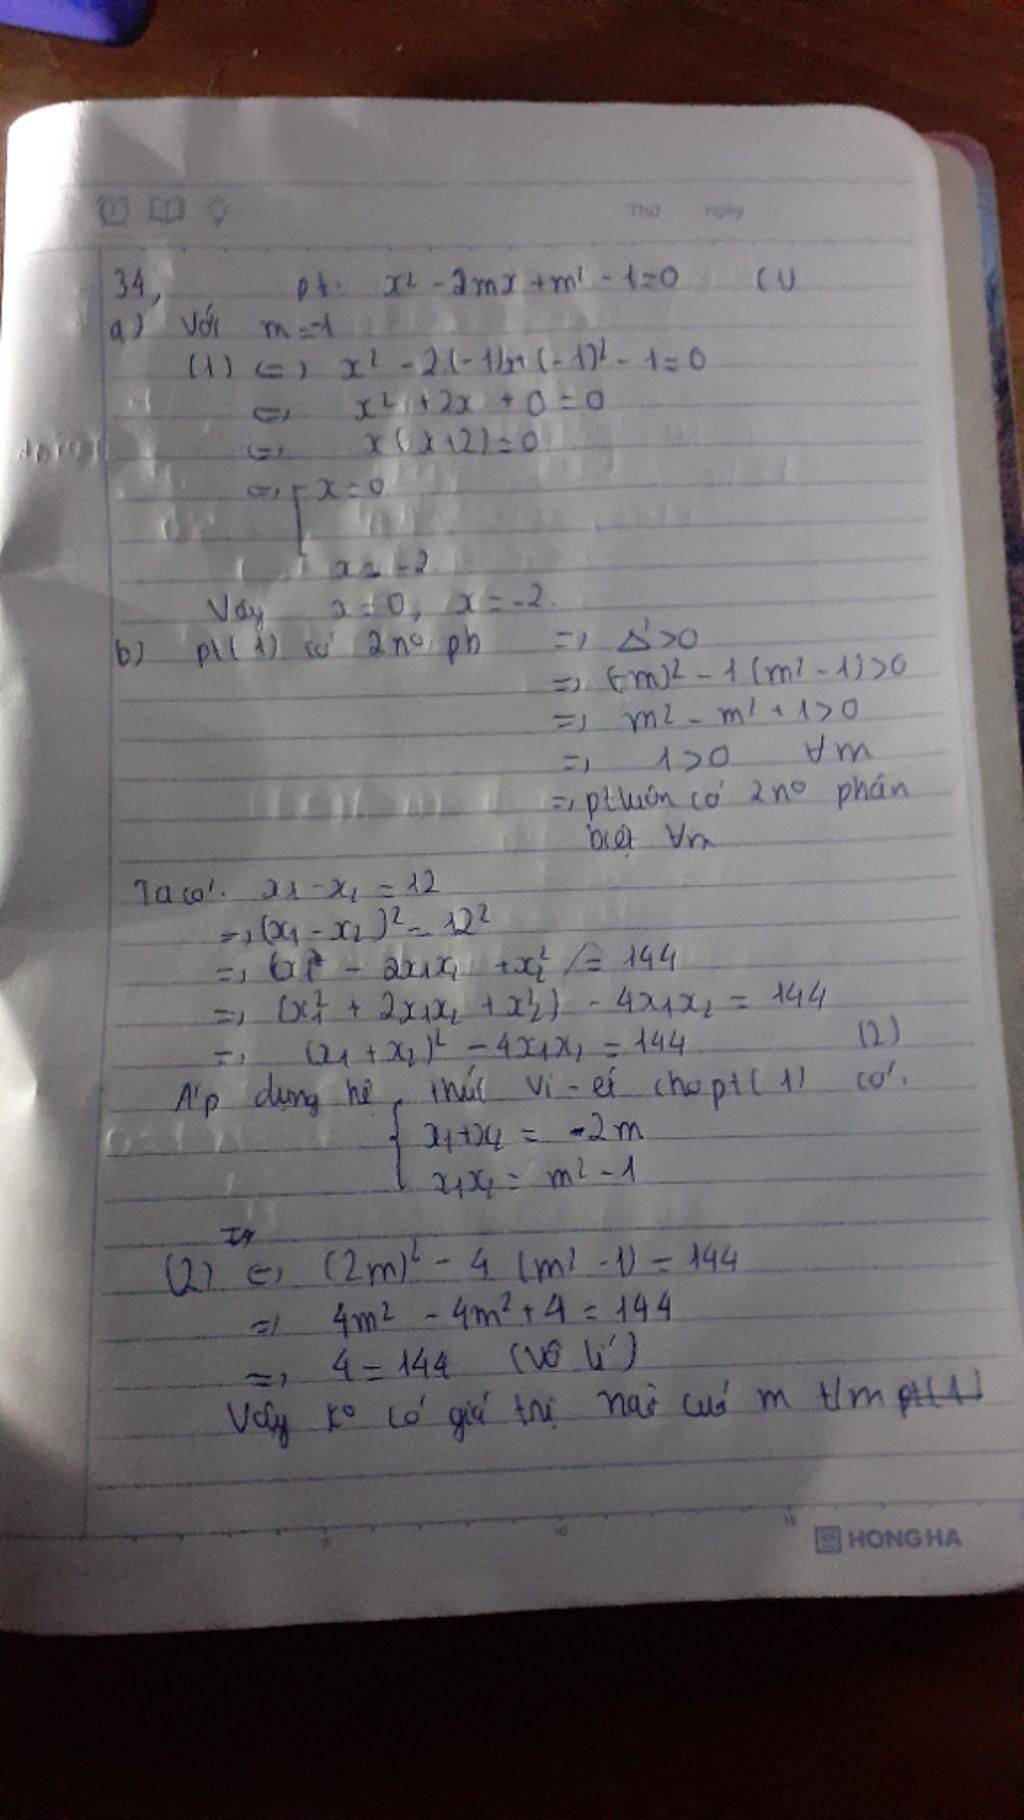 Thứ ngày
34, pt: x² - 2mx + m² - 1 = 0 (1)
a) Với m = -1
(1) <=> x² - 2.(-1)x + (-1)² - 1 = 0
<=> x² + 2x + 0 = 0
<=> x(x+2) = 0
<=> [ x = 0
x = -2
Vậy x = 0, x = -2.
b) pt(1) có 2 n⁰ pb => Δ' > 0
=> (-m)² - 1.(m² - 1) > 0
=> m² - m² + 1 > 0
=> 1 > 0 ∀m
=> pt luôn có 2 n⁰ phân
biệt ∀m
Ta có: x₁ - x₂ = 12
=> (x₁ - x₂)² = 12²
=> x₁² - 2x₁x₂ + x₂² = 144
=> (x₁² + 2x₁x₂ + x₂²) - 4x₁x₂ = 144
=> (x₁ + x₂)² - 4x₁x₂ = 144 (2)
Áp dụng hệ thức Vi-ét cho pt(1) có:
{ x₁ + x₂ = 2m
x₁x₂ = m² - 1
(2) <=> (2m)² - 4(m² - 1) = 144
=> 4m² - 4m² + 4 = 144
=> 4 = 144 (vô lí)
Vậy k⁰ có giá trị nào cuả m t/m pt(1)
5 10 15
HONG HA